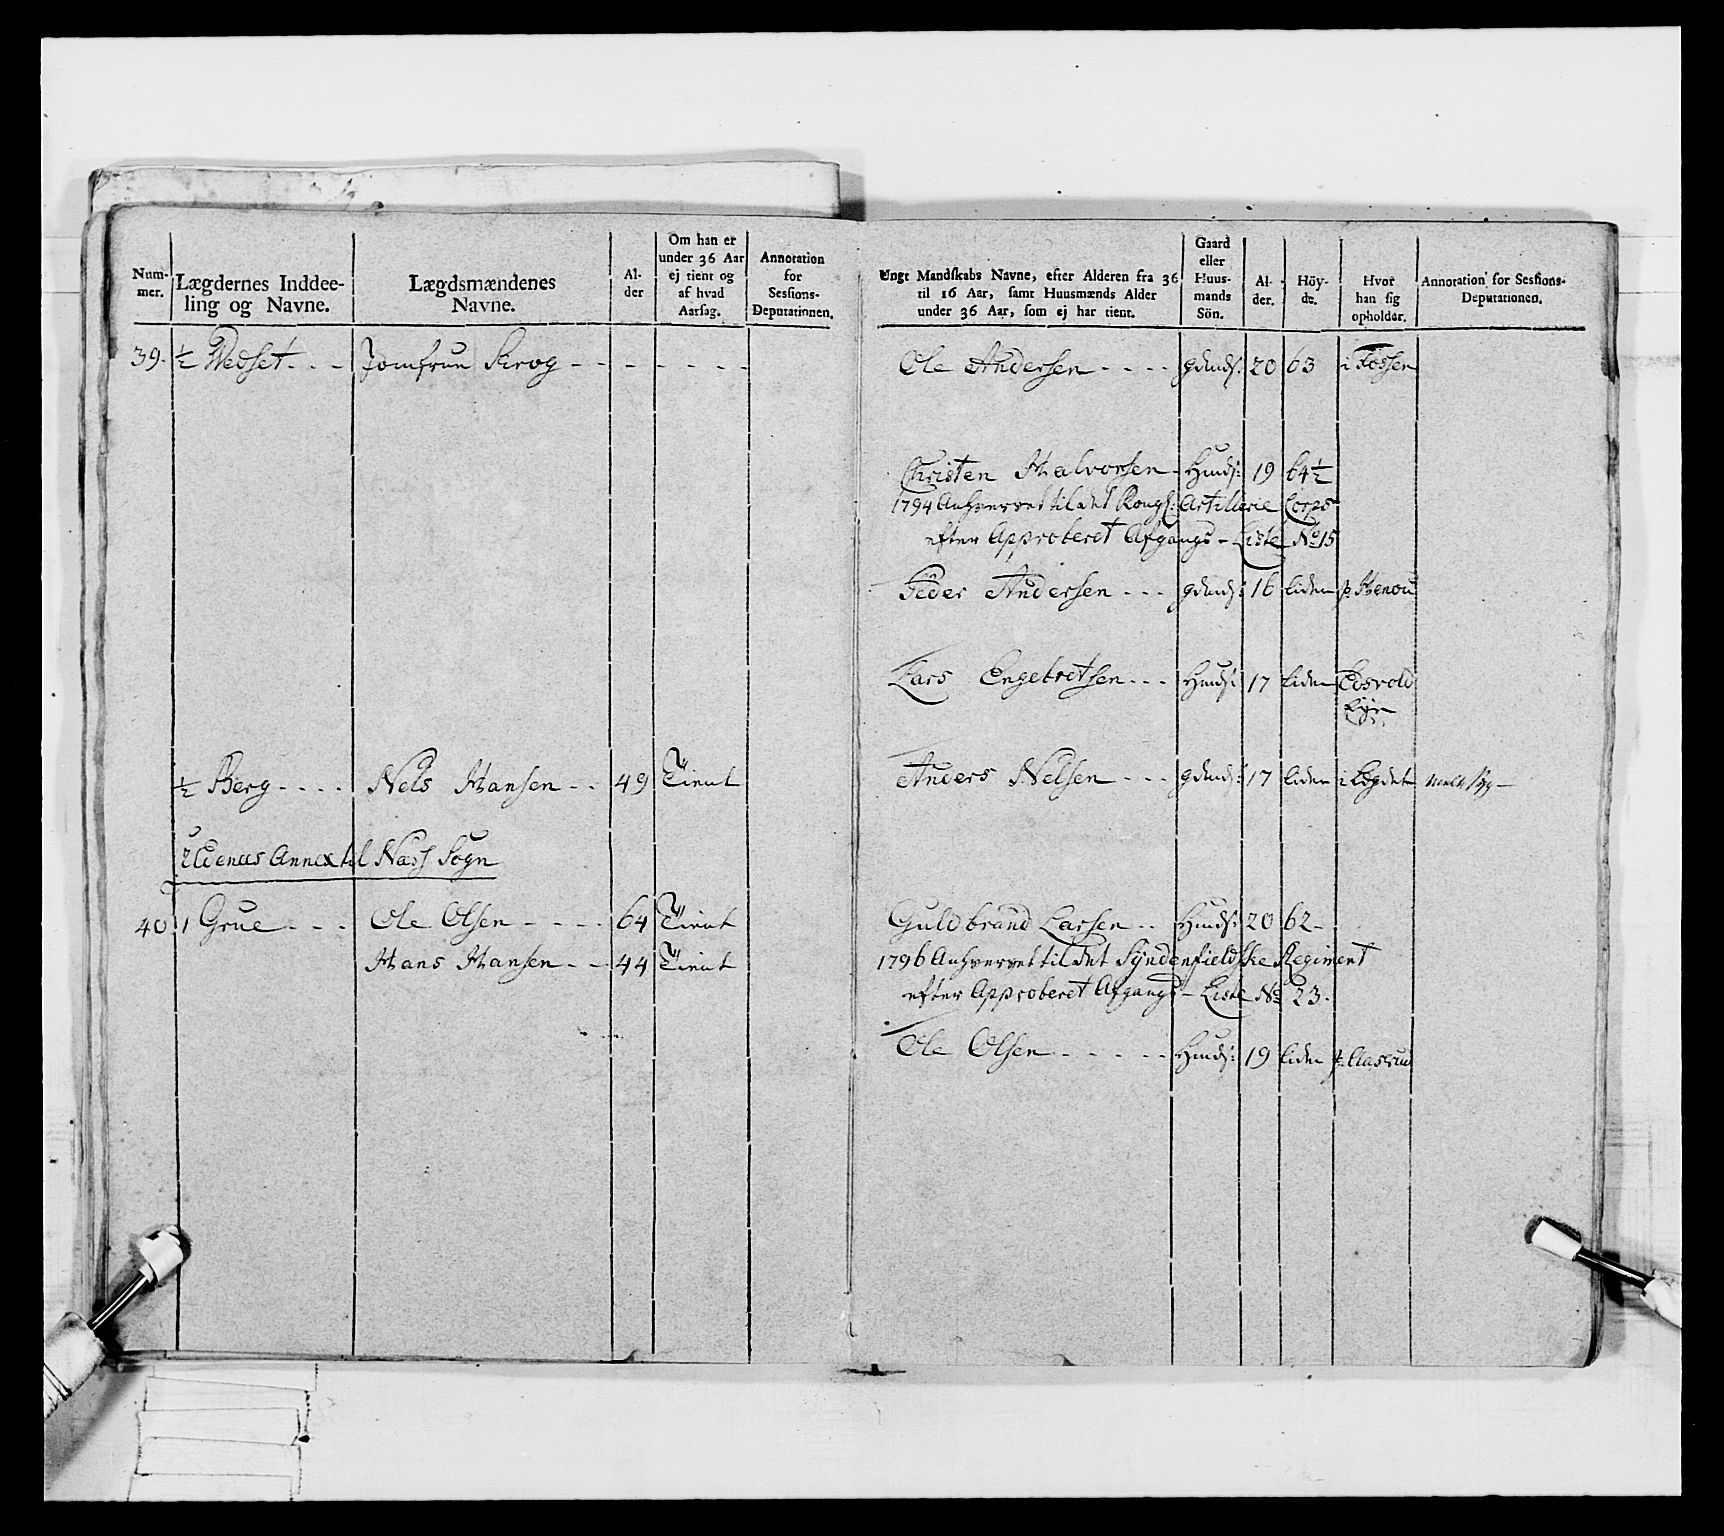 Num-
mer.
Lægdernes Inddee-
ling og Navne.
Lægdsmændenes
Navne.
Al-
der
Om han er
under 36 Aar
ej tient og
af hvad
Aarsag.
Annotation
for
Sessions-
Deputationen.
39. ½ Wedset - - - Jomfrue Krog - - - - - - -
½ Berg - - - - Nels Hansen - - 49 Tient
Udenes Annex til Næss Sogn
40. 1 Grue - - - Ole Olsen - - - - 64 Tient
Hans Hansen - - 44 Tient
Ungt Mandskabs Navne, efter Alderen fra 36
til 16 Aar, samt Huusmænds Alder
under 36 Aar, som ej har tient.
Gaard
eller
Huus-
mands
Sön.
Al-
der.
Höy-
de.
Hvor
han sig
opholder.
Annotation for Sessions-
Deputationen.
Ole Andersen - - - - gdmds: 20 63 i Fossen
Christen Halvorsen - Hmds: 19 64½
1794 Anhvervet til det Kongl: Artillerie Corps
efter Approberet Afgangs-Liste No 15
Peder Andersen - - - gdmds: 16 liden p.
Lars Engebretsen - - - Hmds: 17 liden Edsvold
Anders Nelsen - - - gdmds: 17 liden i Lægdet
Guldbrand Larsen - - Hmds: 20 62 -
1796 Anhvervet til det Syndenfieldske Regiment
efter Approberet Afgangs-Liste No 23.
Ole Olsen - - - - - Hmds: 19 liden p. Aasrud